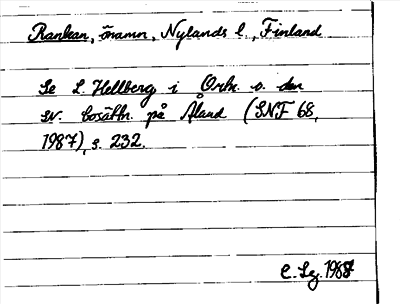 Rankan, önamn, Nylands l., Finland
Se L. Hellberg i Ortn. o. den
sv. bosättn. på Åland (SNF 68,
1987), s. 232.
C. Lg. 1988